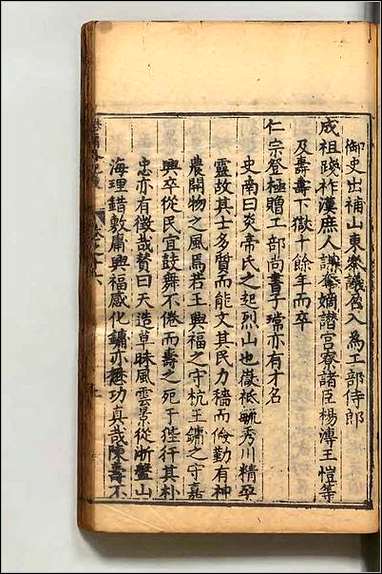 御史出補山東叅議召入為工部侍郎
成祖踐祚漢庶人謀奪嫡譖宮寮諸臣楊溥王愷等
及壽壽下獄十餘年而卒
仁宗登極贈工部尚書子瑺亦有才名
史南曰炎帝氏之起烈山也嶽祗毓秀川精孕
靈故其士多質而能文其民力穡而儉勤有神
農開物之風焉若王興福之守杭王鏞之守嘉
興卒從民宜鼓舞不倦而壽之死于陛行其朴
忠亦有徵哉贊曰天造草昧風雲景從浙盤山
海理錯敷庸興福感化鏞亦懋功真哉陳壽不